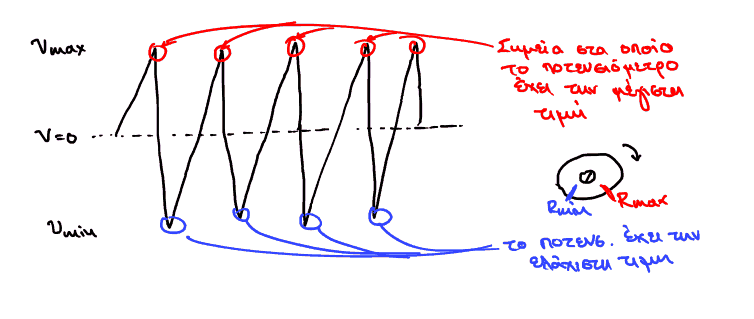 Vmax
Σημεία στα οποίο
το ποτενσιόμετρο
έχει την μέγιστη
τιμή
V=0
Rmin
Rmax
Vmin
το ποτενσ. έχει την
ελάχιστη τιμή